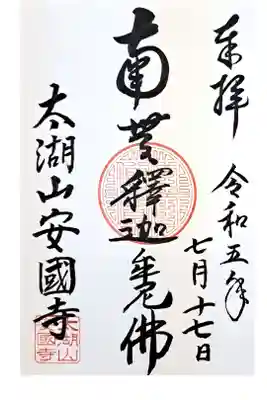 奉拝
令和五年
七月十七日
南無釋迦牟尼佛
太湖山安國寺
太湖山
安國寺